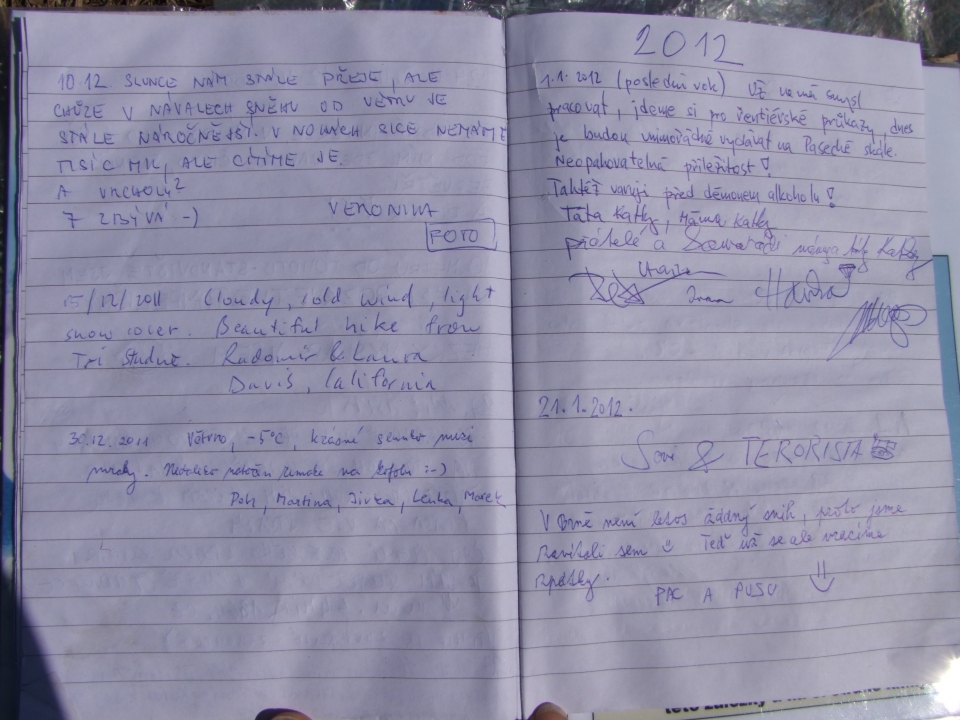 10.12. SLUNCE NÁM STÁLE PŘEJE, ALE
CHŮZE V NÁVALECH SNĚHU OD VĚTRU JE
STÁLE NÁROČNĚJŠÍ. V NOHÁCH SICE NEMÁME
TISÍC MIL, ALE CÍTÍME JE.
A VRCHOLY?
7 ZBÝVÁ :-)
VERONIKA
FOTO
15/12/2011 Cloudy, cold wind, light
snow cover. Beautiful hike from
Tři Studně. Radomir & Laura
Davis, California
30.12.2011 Větrno, -5°C, krásné slunko mezi
mraky. na kofolu :-)
Petr, Martina, Jirka, Lenka, Marek
2012
1.1.2012 (poslední rok) Už nemá smysl
pracovat, jdeme si pro řentiérské průkazy, dnes
je budou mimořádně vydávat na Pasecké skále.
Neopakovatelná příležitost!
Taktéž varuji před démonem alkoholu!
Táta Katky, Máma Katky
přátelé a
Ivana
21.1.2012.
& TERORISTA
V Brně není letos žádný sníh, proto jsme
sem Teď už se ale vracíme
zpátky.
PAC A PUSU